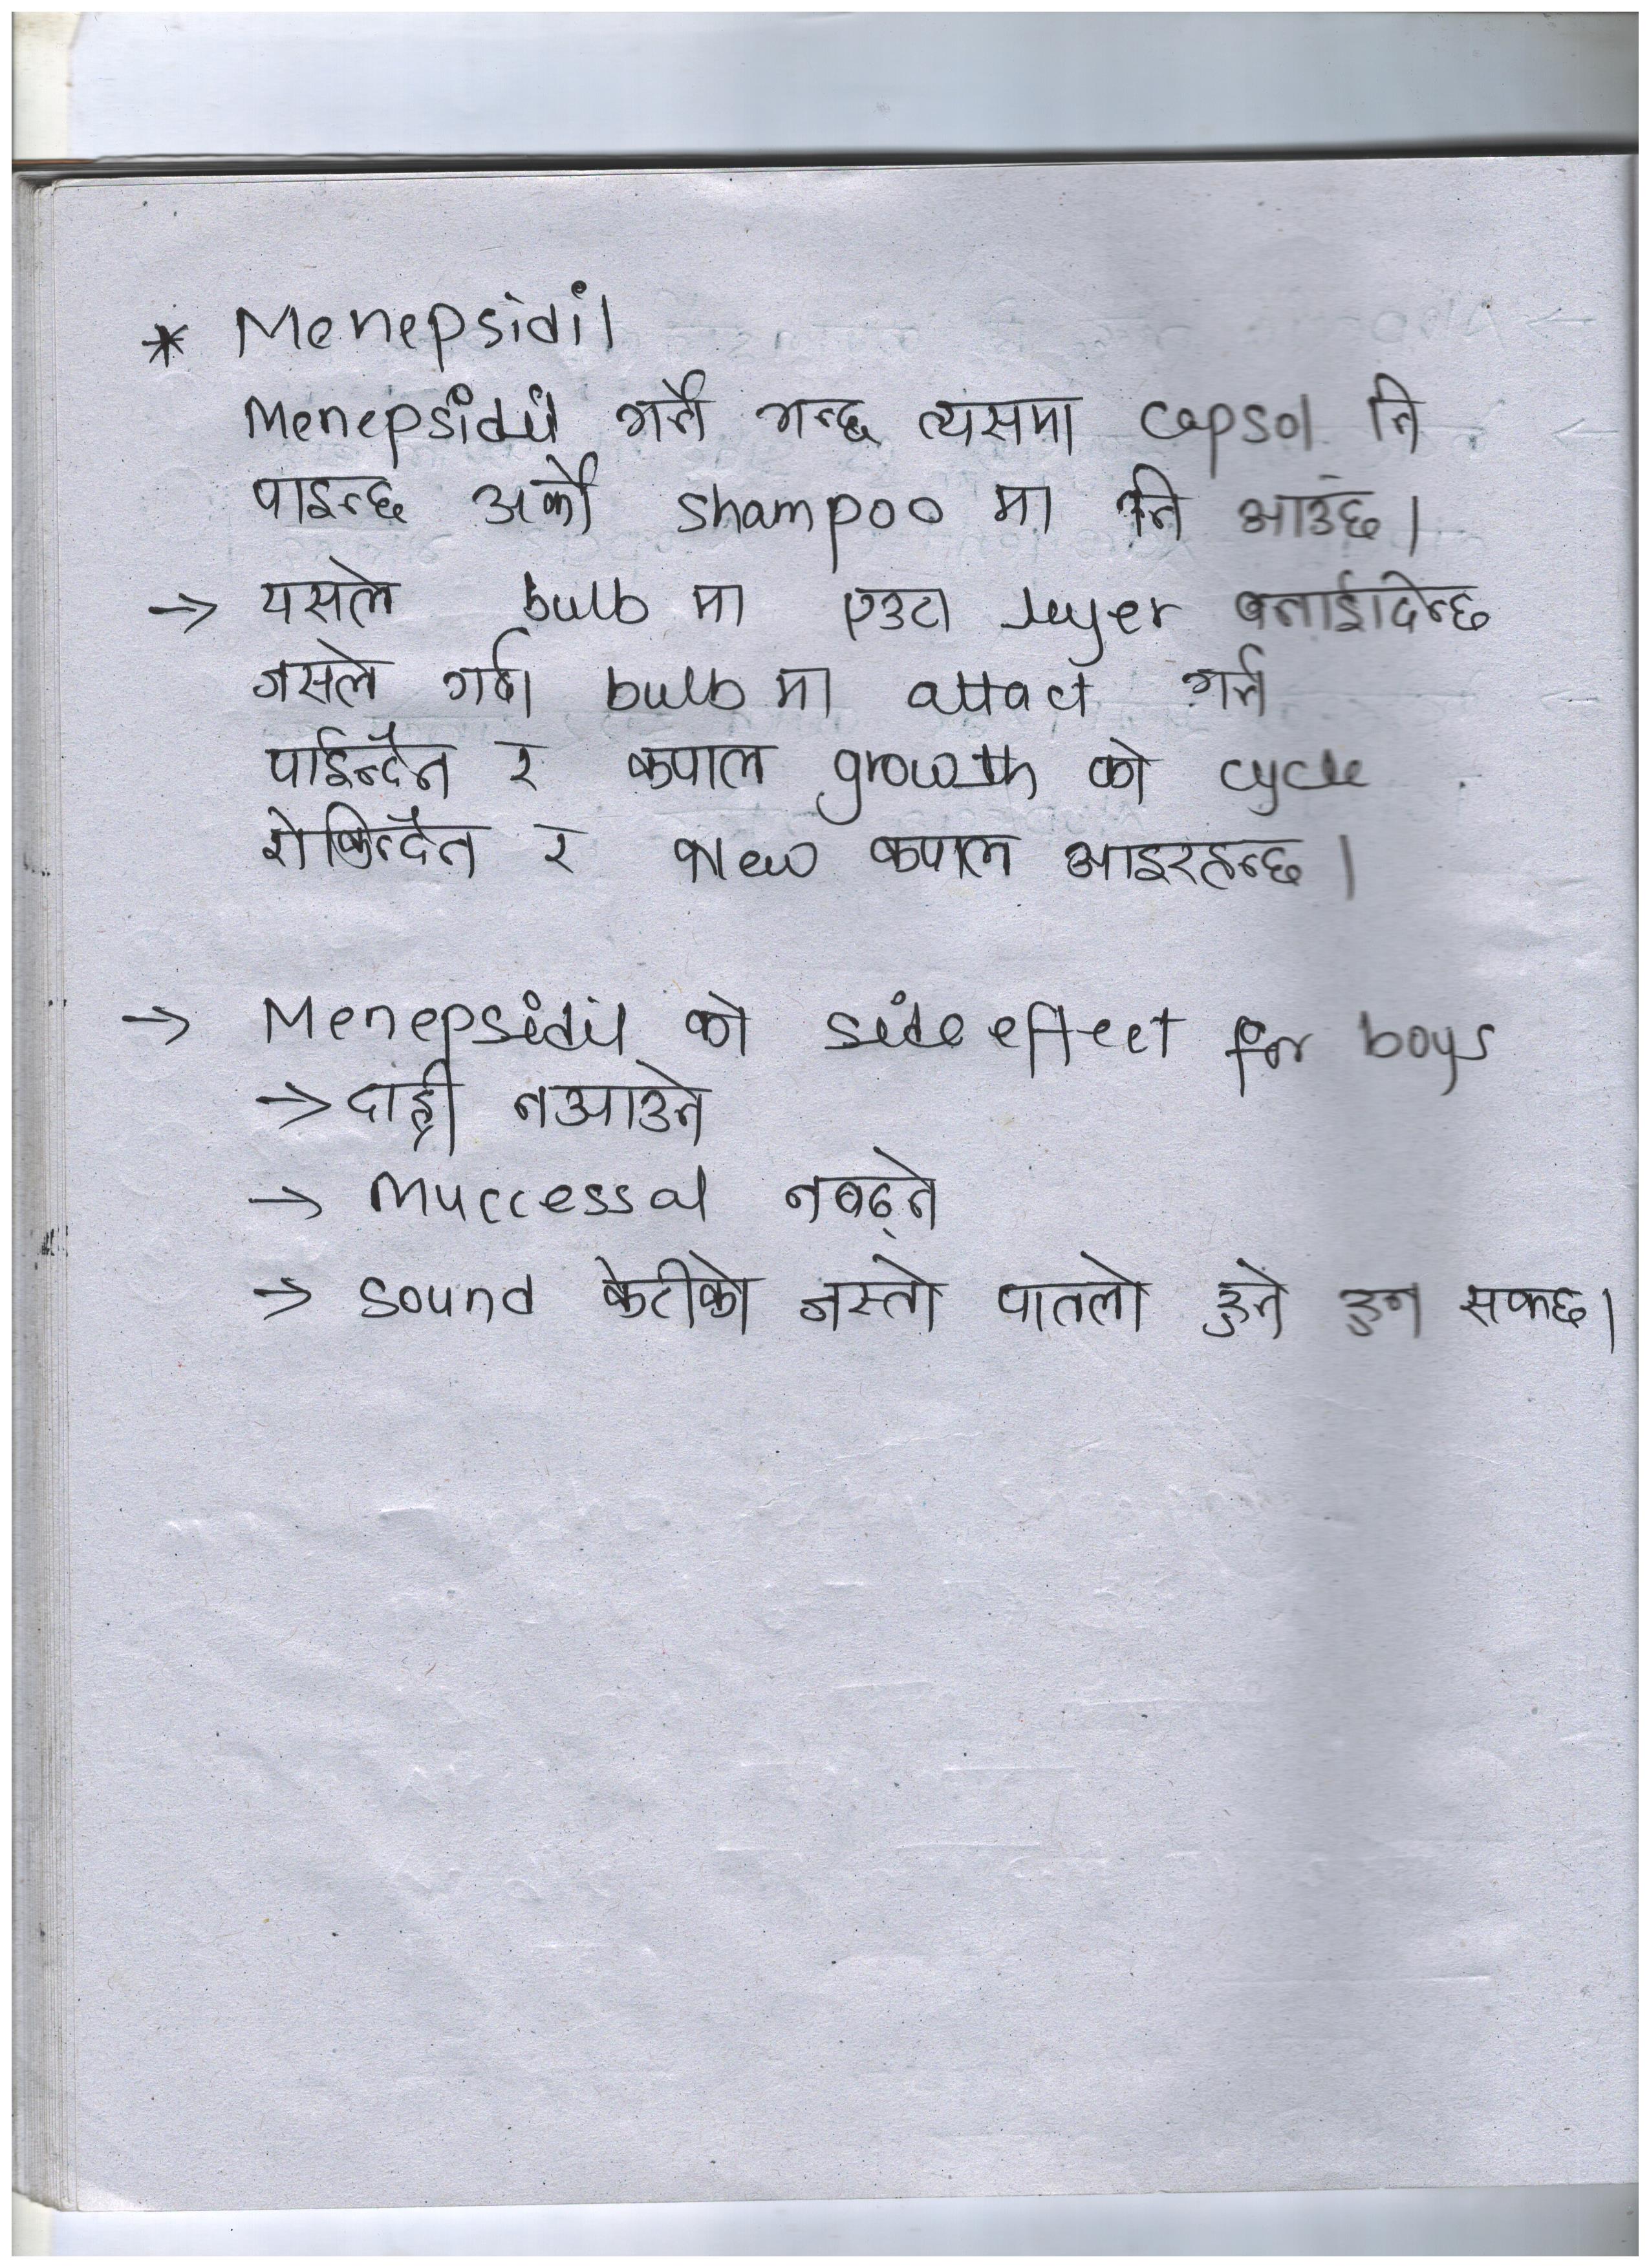 * Menepsidil
Menepsidil गर्ने गन्छ त्यसमा capsol नि
पाइन्छ अर्को shampoo मा नि आउँछ।
→ यसले bulb मा एउटा leyer बनाईदिन्छ
जसले गर्दा bulb मा attact गर्न
पाईन्दैन र कपाल growth को cycle
रोकिन्दैन र new कपाल आइरहन्छ।
→ Menepsidil को side effect for boys
→ दाह्री नआउने
→ Muccessal नबढ्ने
→ sound केटीको जस्तो पातलो हुने हुन सक्छ।